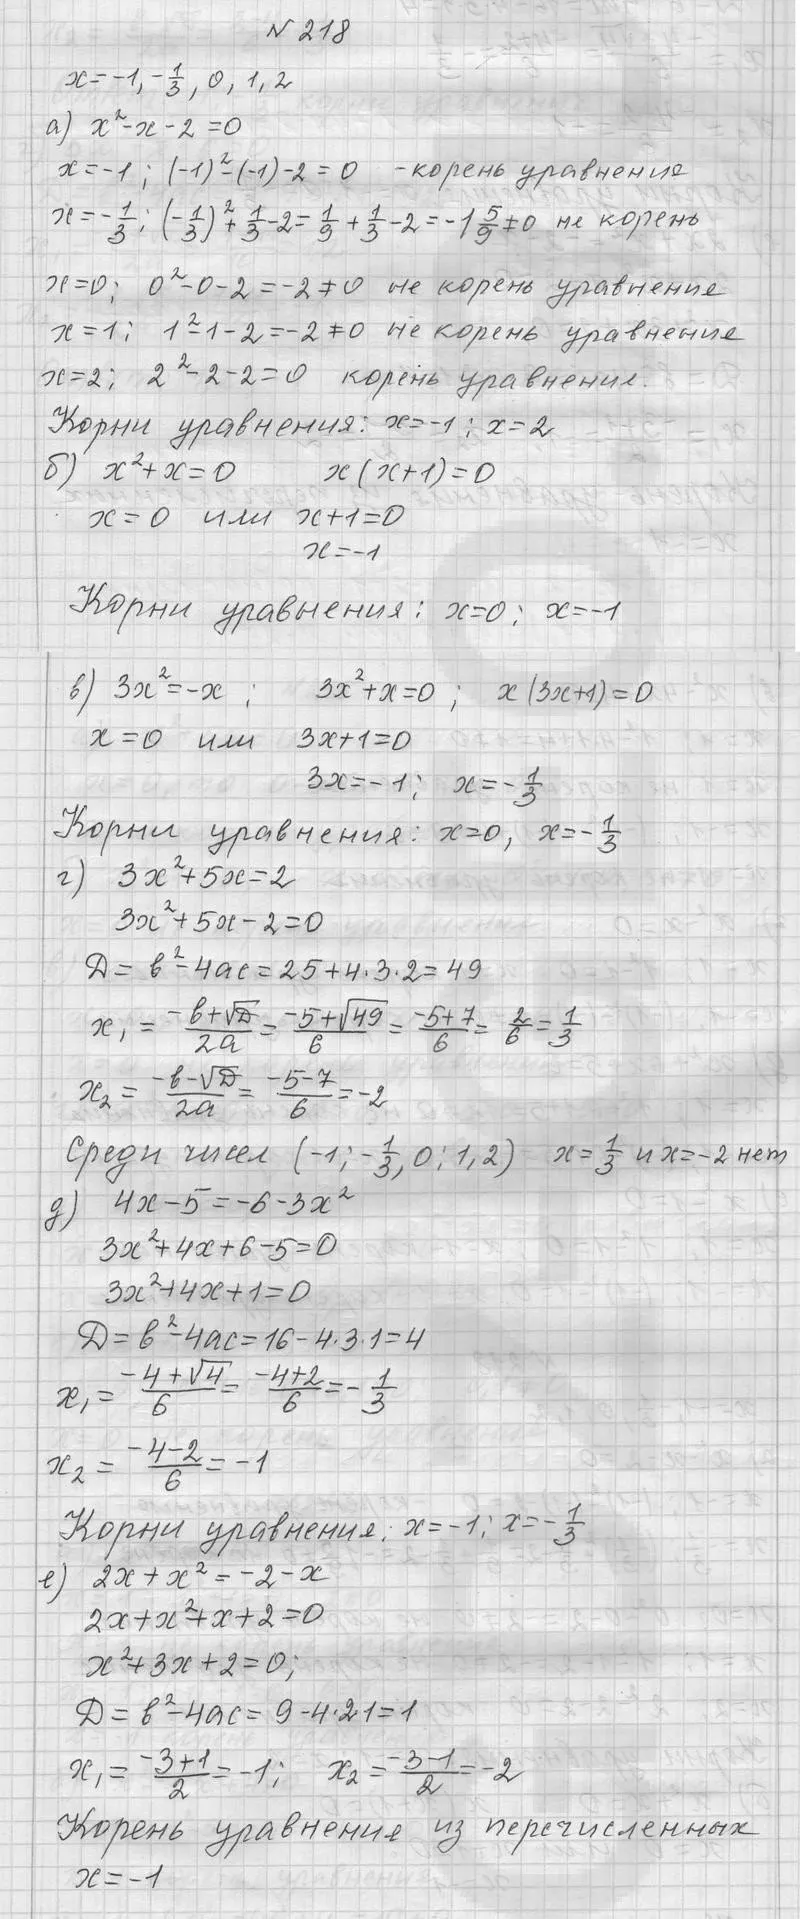 № 218
x = -1, -1/3, 0, 1, 2
а) x² - x - 2 = 0
x = -1; (-1)² - (-1) - 2 = 0 - корень уравнения
x = -1/3; (-1/3)² + 1/3 - 2 = 1/9 + 1/3 - 2 = -1 5/9 ≠ 0 не корень
x = 0; 0² - 0 - 2 = -2 ≠ 0 не корень уравнения
x = 1; 1² - 1 - 2 = -2 ≠ 0 не корень уравнения
x = 2; 2² - 2 - 2 = 0 корень уравнения.
Корни уравнения: x = -1; x = 2
б) x² + x = 0 x(x+1) = 0
x = 0 или x + 1 = 0
x = -1
Корни уравнения: x = 0; x = -1
в) 3x² = -x; 3x² + x = 0; x(3x+1) = 0
x = 0 или 3x + 1 = 0
3x = -1; x = -1/3
Корни уравнения: x = 0, x = -1/3
г) 3x² + 5x = 2
3x² + 5x - 2 = 0
Д = в² - 4ac = 25 + 4·3·2 = 49
x₁ = (-в + √Д)/2a = (-5 + √49)/6 = (-5 + 7)/6 = 2/6 = 1/3
x₂ = (-в - √Д)/2a = (-5 - 7)/6 = -2
Среди чисел (-1; -1/3, 0; 1, 2) x = 1/3 и x = -2 нет
д) 4x - 5 = -6 - 3x²
3x² + 4x + 6 - 5 = 0
3x² + 4x + 1 = 0
Д = в² - 4ac = 16 - 4·3·1 = 4
x₁ = (-4 + √4)/6 = (-4 + 2)/6 = -1/3
x₂ = (-4 - 2)/6 = -1
Корни уравнения: x = -1; x = -1/3
е) 2x + x² = -2 - x
2x + x² + x + 2 = 0
x² + 3x + 2 = 0;
Д = в² - 4ac = 9 - 4·2·1 = 1
x₁ = (-3 + 1)/2 = -1; x₂ = (-3 - 1)/2 = -2
Корень уравнения из перечисленных
x = -1